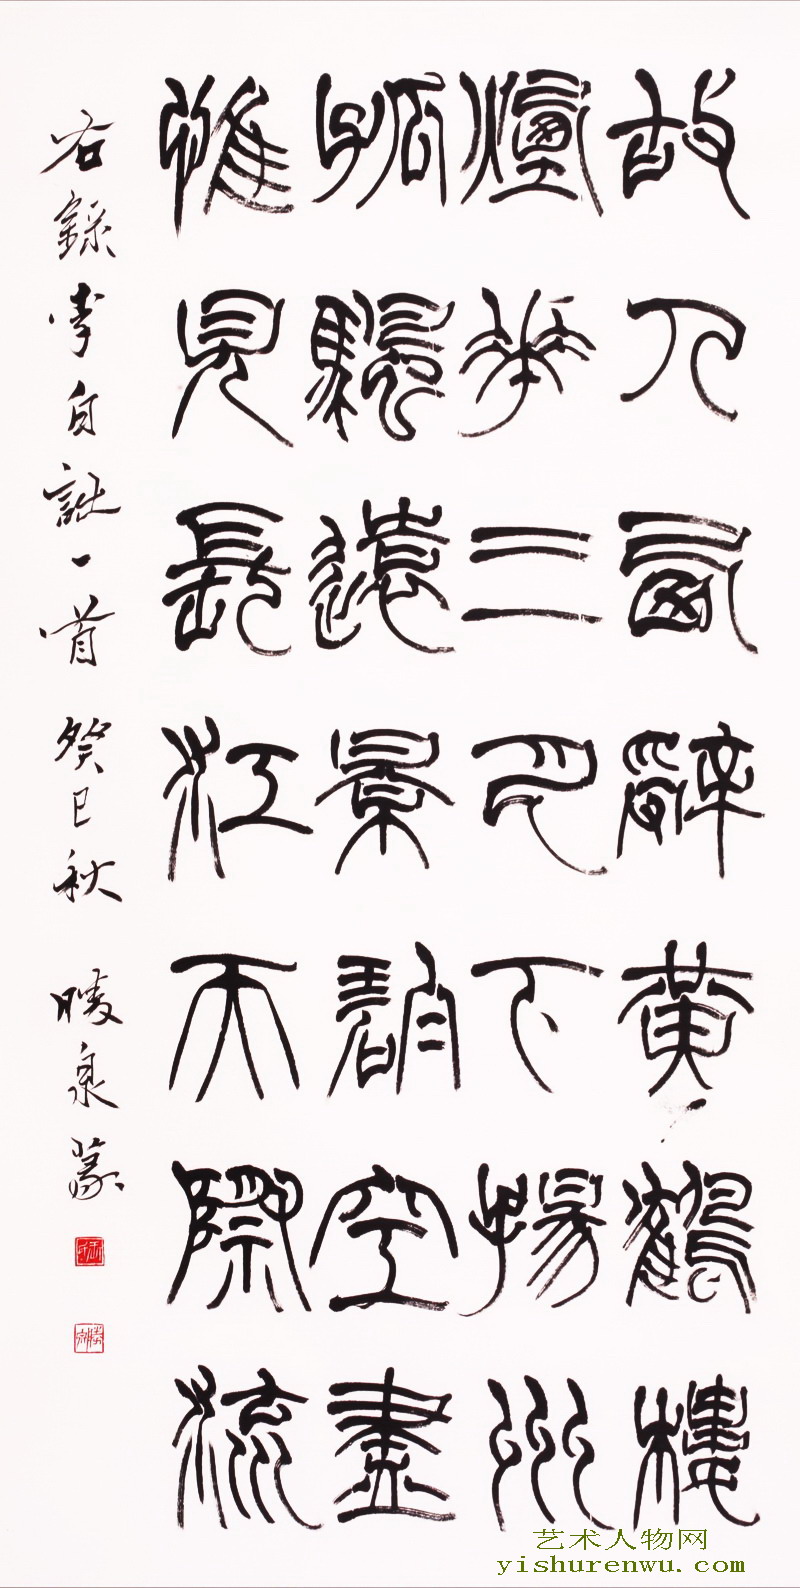 故人西辭黃鶴樓
煙華三月下揚州
孤颿遠景碧空盡
惟見長江天際流
右錄李白詩一首 癸巳秋 泉篆
艺术人物网
yishurenwu.com